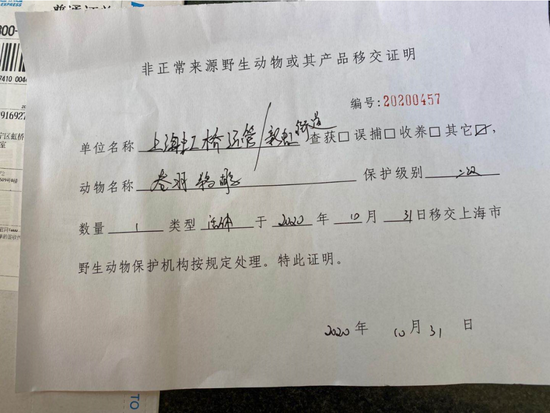 普通
800-
7410 004
916927
宁区虹桥
室
非正常来源野生动物或其产品移交证明
编号:20200457
单位名称 上海虹桥运管/新虹街道 查获□ 误捕□ 收养□ 其它☑,
动物名称 卷羽鹈鹕 保护级别 二级
数量 1 类型 活体 于 2020 年 10 月 31 日移交上海市
野生动物保护机构按规定处理。特此证明。
2020 年 10 月 31 日